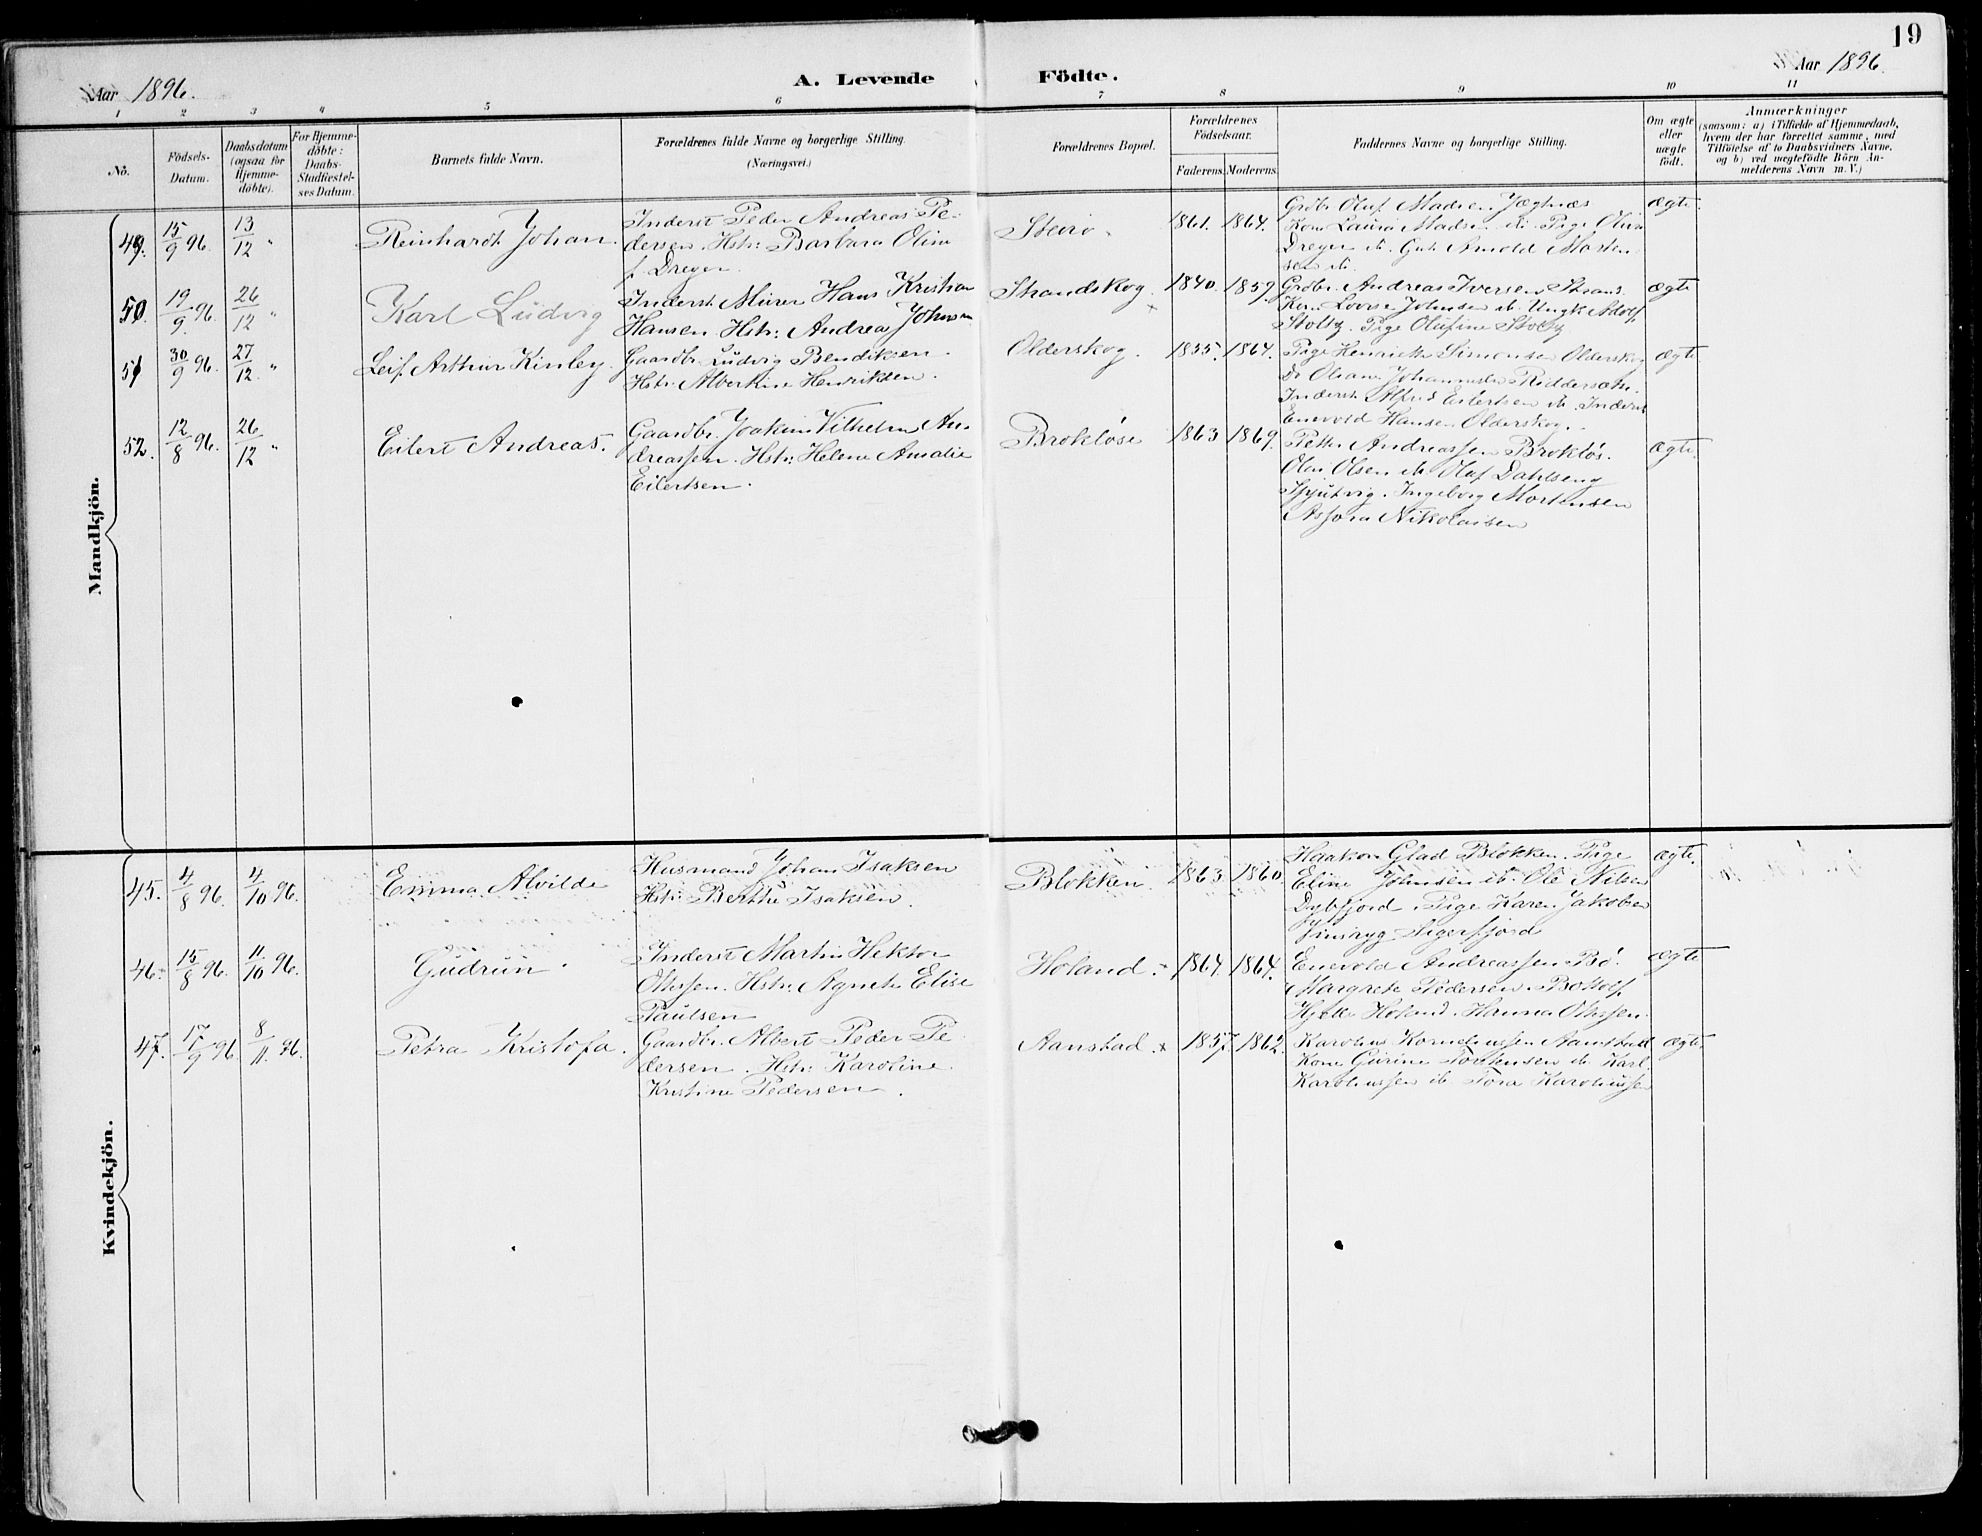 19
Aar 1896.
A. Levende Födte.
Aar 1896.
1 2 3 4 5 6 7 8 9 10 11
No.
Födsels-
Datum.
Daabsdatum
(ogsaa for
Hjemme-
döbte).
For Hjemme-
döbte:
Daabs-
Stadfæstel-
ses Datum.
Barnets fulde Navn.
Forældrenes fulde Navne og borgerlige Stilling.
(Næringsvei.)
Forældrenes Bopæl.
Forældrenes
Födselsaar.
Faderens. Moderens.
Faddernes Navne og borgerlige Stilling.
Om ægte
eller
uægte
födt.
Anmærkninger
(saasom: a) i Tilfælde af Hjemmedaab,
hvem der har forrettet samme, med
Tilföielse af to Daabsvidners Navne,
og b) ved uægtefödte Börn An-
melderens Navn m. V.)
Mandkjön.
49. 15/9 96. 13/12 "
Reinhardt Johan.
Inderst Peder Andreas Pe-
dersen. Hstr: Barbara Olina
f. Dreyer.
Steirø.
1861. 1864.
Grdbr. Oluf Madsen Jægtnæs
Kone Laura Madsen ib. Pige Olina
Dreyer ib. Gut Arnold Morten-
sen ib.
Ægte.
50. 19/9 96. 26/12 "
Karl Ludvig
Inderst Murer Hans Kristian
Hansen. Hstr: Andrea Johnsen
Strandskog.
1840. 1859.
Grdbr. Andreas Iversen Strands.
Kone Lovise Johnsen ib. Ungk. Adolf
Stoltz. Pige Olufine Stoltz
Ægte
51 30/9 96. 27/12. "
Leif Arthur Kinley.
Gaardbr. Ludvig Bendiksen.
Hstr. Albertine Henriksen.
Olderskog.
1835. 1864.
Pige Henrikke Simonsen Olderskog
Do Oliane Johannesen
Inderst Alfred Eilertsen ib. Inderst
Enevold Hansen Olderskog.
Ægte
52. 12/8 96. 26/12 "
Eilert Andreas.
Gaardbr. Joakim Vilhelm An-
dreassen. Hstr: Helene Amalie
Eilertsen.
Brokløse
1863 1869.
Petter Andreassen Brokløs.
Olai Olsen ib. Oluf Dahlseng
Spjutvig. Ingeborg Mortensen
Assora Nikolaisen
Ægte.
Kvindekjön.
45. 4/8 96. 4/10 96.
Emma Alvilde
Husmand Johan Isaksen
Hstr: Berthe Isaksen.
Blokken
1863 1860.
Haakon Glad Blokken. Pige
Eline Johnsen ib. Ole Nilsen
Dybfjord. Pige Karen Jakobsen
Sigerfjord
Ægte.
46. 15/8 96. 11/10 96.
Gudrun.
Inderst Martin Hektor
Othesen. Hstr: Agnete Elise
Paulsen
Holand.
1864. 1864.
Enevold Andreassen Bø.
Margrete Pedersen. Bottolf
Holand. Hanna Othesen.
Ægte
47. 17/9 96. 8/11 96.
Petra Kristofa.
Gaardbr. Albert Peder Pe-
dersen. Hstr: Karoline
Kristine Pedersen.
Aanstad.
1857. 1862.
Karolius Korneliussen Aanstad
Kone Gurine Torkensen ib. Karl
Karoliussen ib. Tora Karoliussen
Ægte.